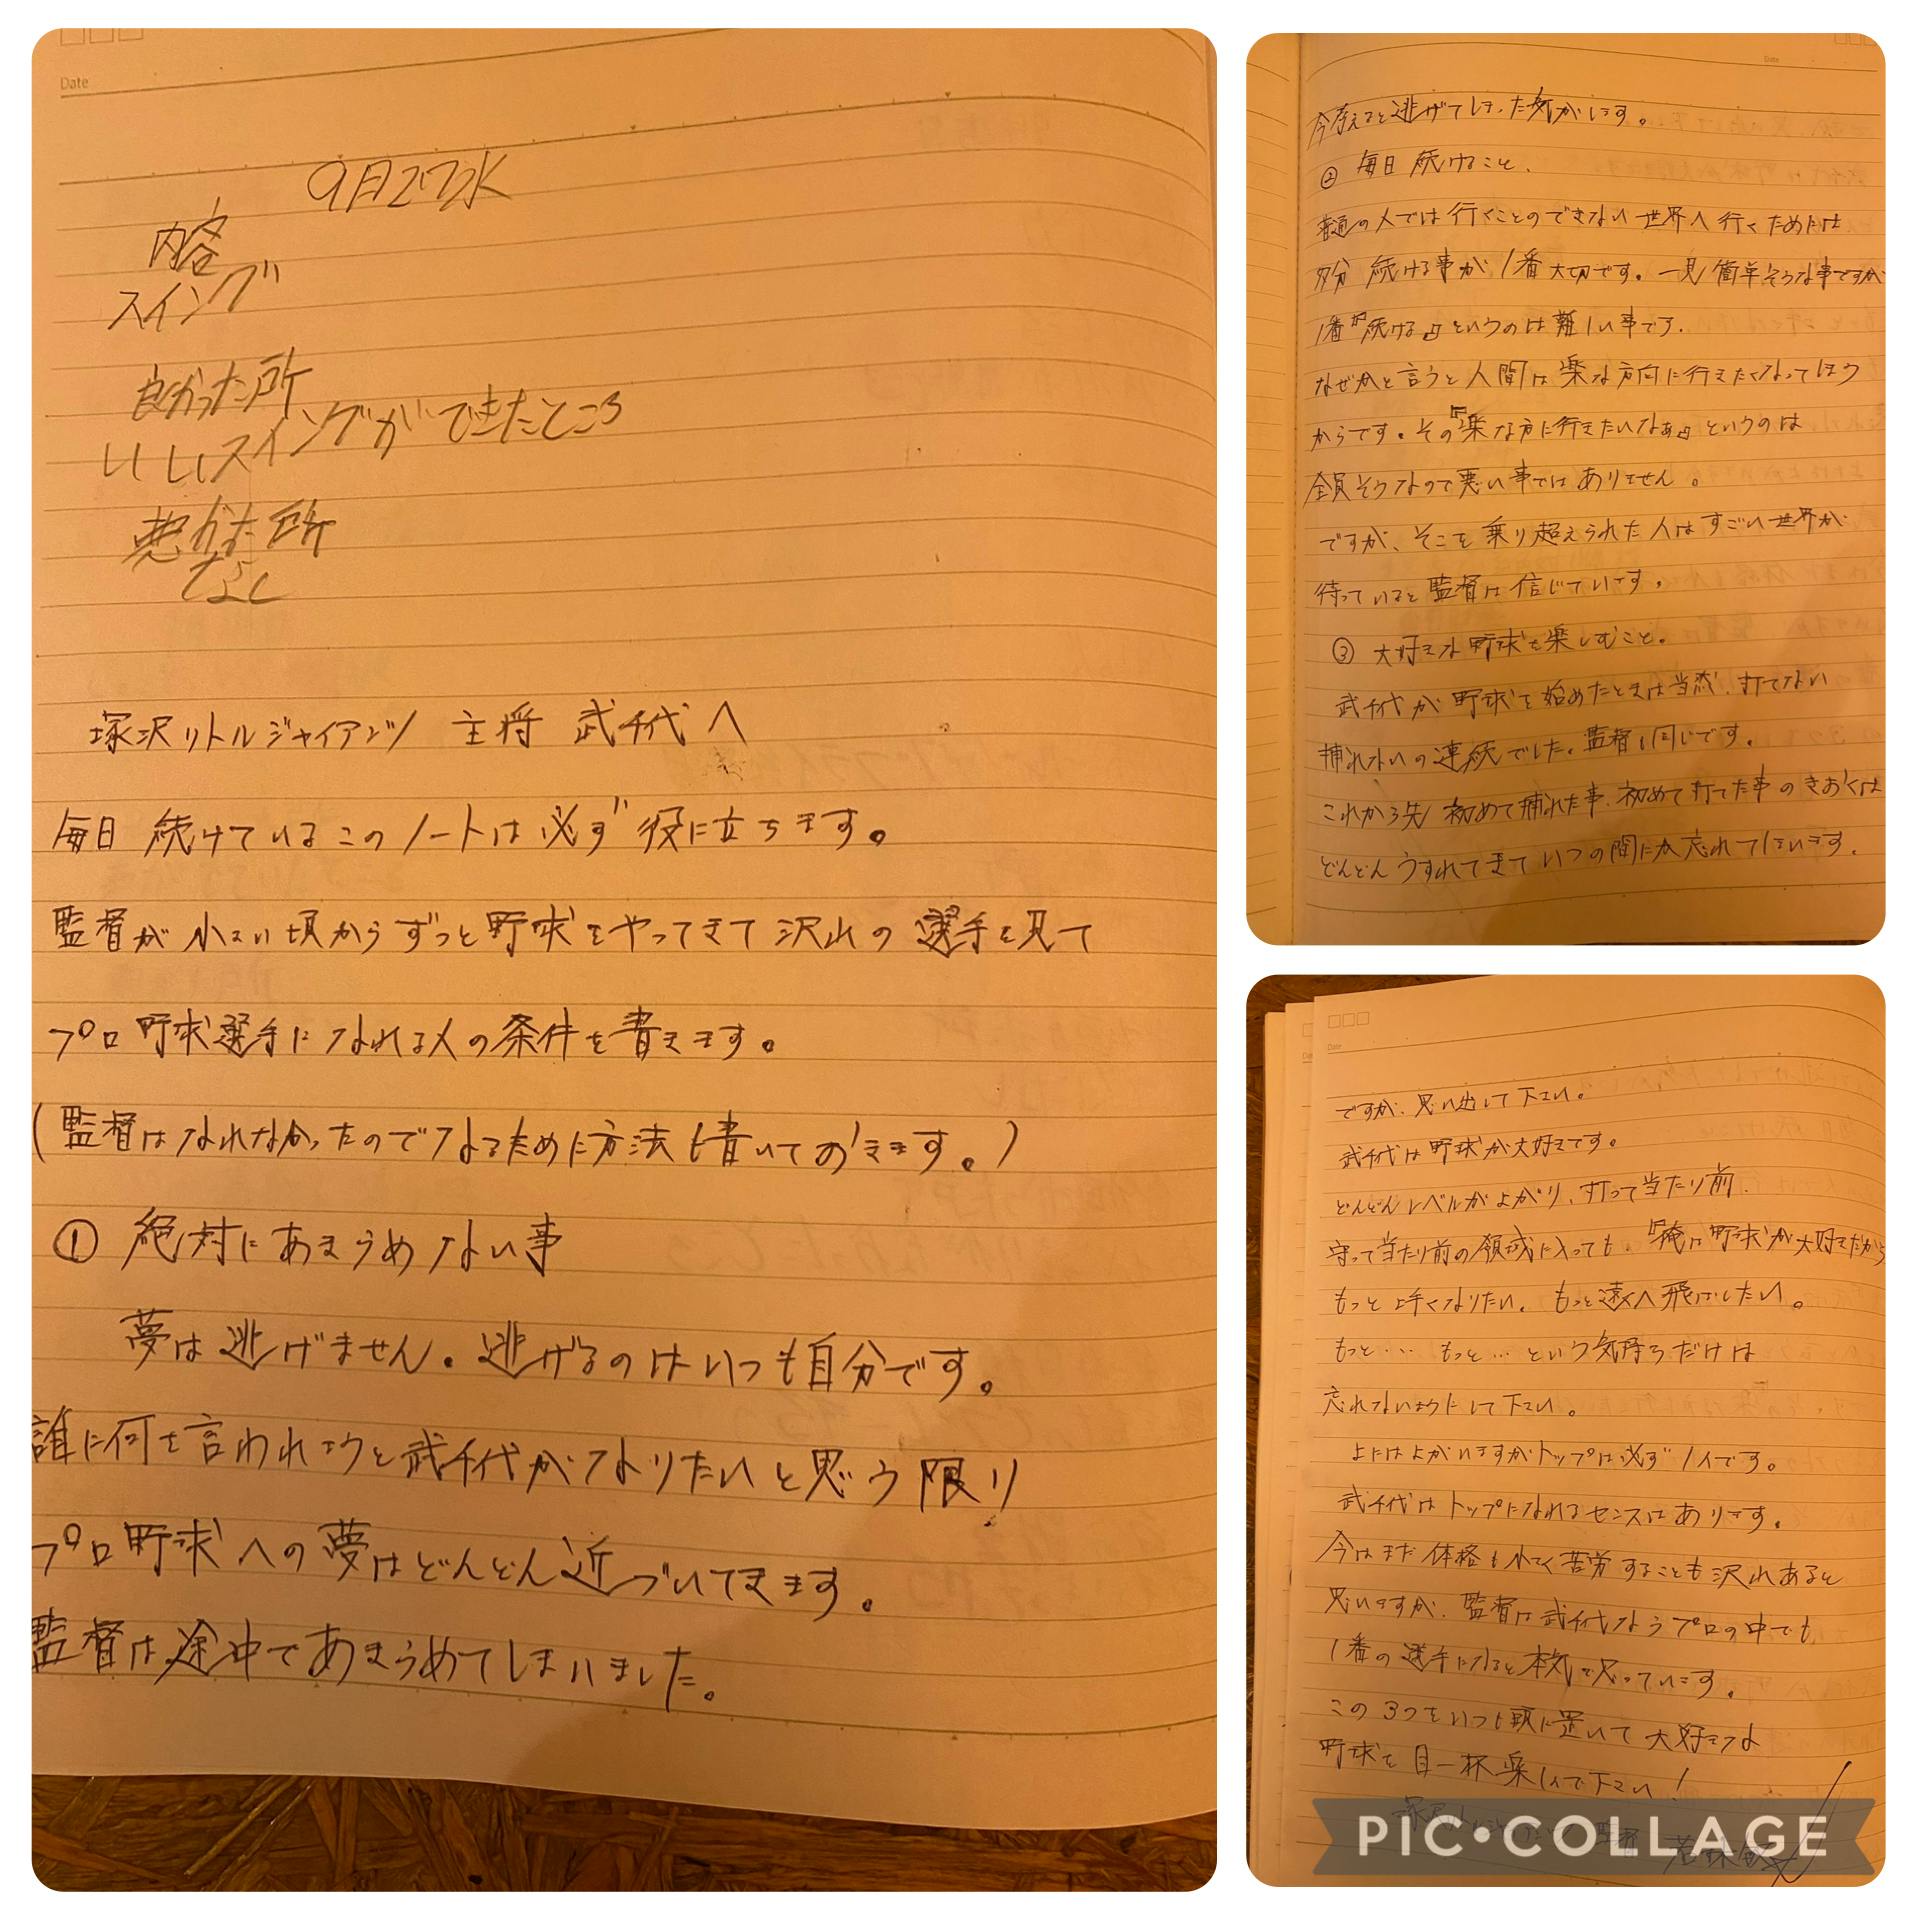 Date
9月27水
内容
スイング
良かった所
いいスイングができたところ
悪かた所
なし
塚沢リトルジャイアンツ 主将 武千代へ
毎日 続けているこのノートは必ず役に立ちます。
監督が小さい頃からずっと野球をやってきて沢山の選手を見て
プロ野球選手になれる人の条件を書きます。
(監督はなれなかったのでなるために方法も書いておきます。)
① 絶対にあきらめない事
夢は逃げません。逃げるのはいつも自分です。
誰に何を言われようと武千代がなりたいと思う限り
プロ野球への夢はどんどん近づいてきます。
監督は途中であきらめてしまいました。
Date
今考えると逃げてしまった気がします。
② 毎日 続けること、
普通の人では行くことのできない世界へ行くためには
多分 続ける事が1番大切です。一見簡単そうな事ですが
1番『続ける』というのは難しい事です。
なぜかと言うと人間は楽な方向に行きたくなってしまう
からです。その『楽な方に行きたいなぁ』というのは
全員そうなので悪い事ではありません。
ですが、そこを乗り超えられた人はすごい世界が
待っていると監督は信じています。
③ 大好きな野球を楽しむこと。
武千代が野球を始めたときは当然、打てない
捕れないの連続でした。監督も同じです。
これから先 初めて捕れた事、初めて打てた事のきおくは
どんどんうすれてきていつの間にか忘れてしまいます。
Date
ですが、思い出して下さい。
武千代は野球が大好きです。
どんどんレベルが上がり、打って当たり前、
守って当たり前の領域に入っても、『俺は野球が大好きだから
もっと上手くなりたい。もっと遠くへ飛ばしたい。
もっと… もっと…という気持ちだけは
忘れないようにして下さい。
上には上がいますがトップは必ず1人です。
武千代はトップになれるセンスはあります。
今はまだ体格も小さく苦労することも沢山あると
思いますが、監督は武千代ならプロの中でも
1番の選手になると本気で思っています。
この3つをいつも頭に置いて大好きな
野球を目一杯楽しんで下さい!
PIC•COLLAGE